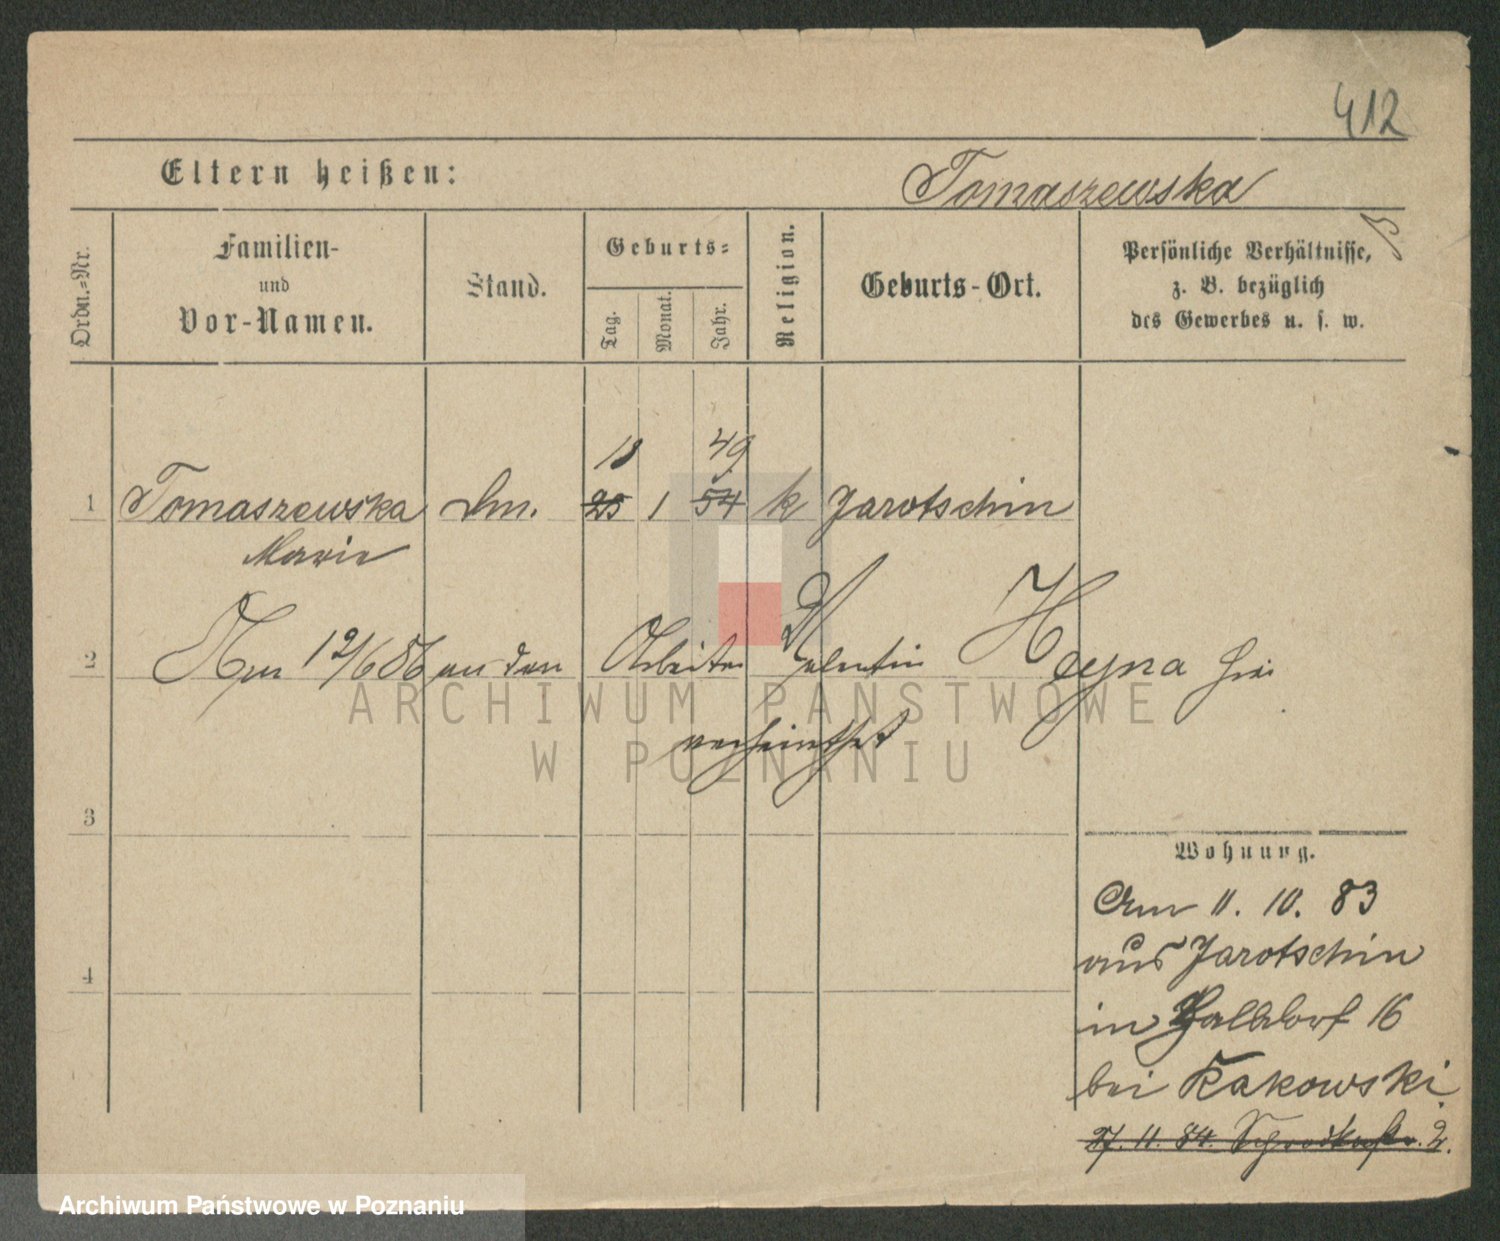 412
Eltern heißen:
Tomaszewska
Ordn.=Nr.
Familien-
und
Vor-Namen.
Stand.
Geburts=
Tag.
Monat.
Jahr.
Religion.
Geburts-Ort.
Persönliche Verhältnisse,
z. B. bezüglich
des Gewerbes u. s. w.
18 49
1 Tomaszewska Dm. 25 1 54 k Jarotschin
Marie
2 Am 19/6 86 an den Arbeiter Valentin Heyna hier
verheirathet
ARCHIWUM PAŃSTWOWE
W POZNANIU
3
4
Wohnung.
Am 11. 10. 83
aus Jarotschin
in Halbdorf 16
bei Kakowski
27. 11. 84. Schrodkastr. 2.
Archiwum Państwowe w Poznaniu